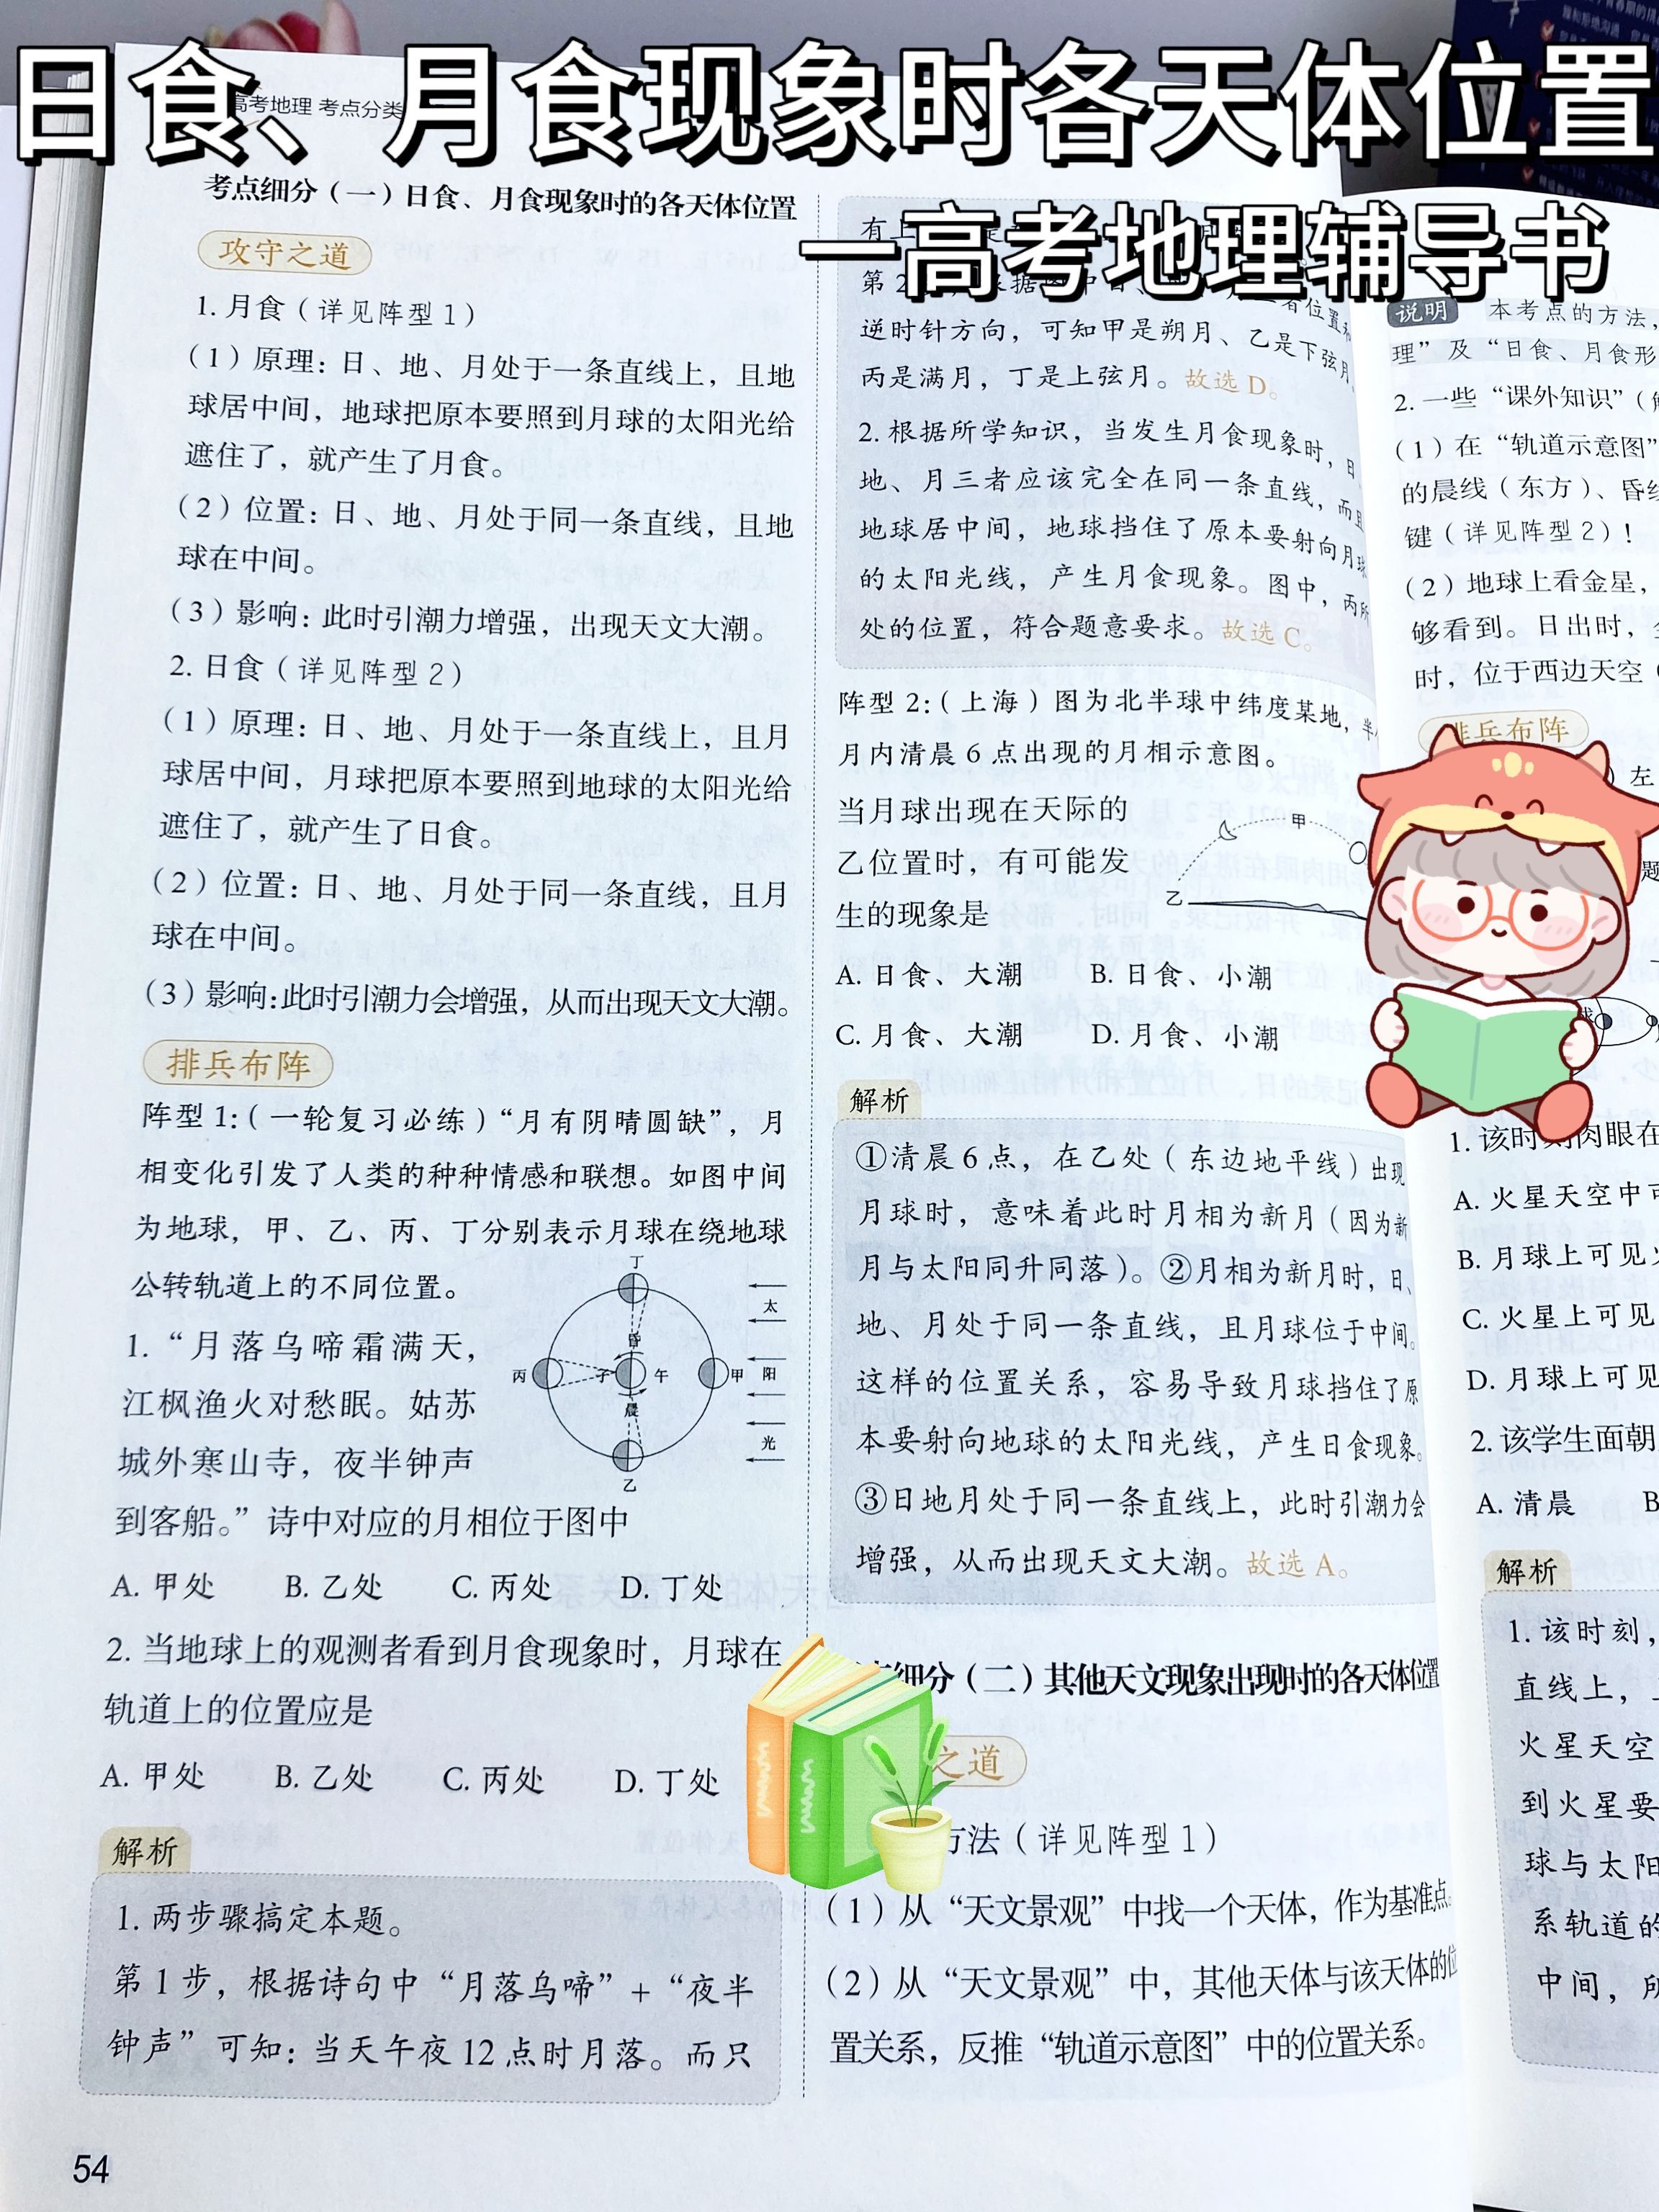 日食、月食现象时各天体位置
—高考地理辅导书
高考地理 考点分类
考点细分（一）日食、月食现象时的各天体位置
攻守之道
1. 月食（详见阵型1）
（1）原理：日、地、月处于一条直线上，且地
球居中间，地球把原本要照到月球的太阳光给
遮住了，就产生了月食。
（2）位置：日、地、月处于同一条直线，且地
球在中间。
（3）影响：此时引潮力增强，出现天文大潮。
2. 日食（详见阵型2）
（1）原理：日、地、月处于一条直线上，且月
球居中间，月球把原本要照到地球的太阳光给
遮住了，就产生了日食。
（2）位置：日、地、月处于同一条直线，且月
球在中间。
（3）影响：此时引潮力会增强，从而出现天文大潮。
排兵布阵
阵型1：（一轮复习必练）“月有阴晴圆缺”，月
相变化引发了人类的种种情感和联想。如图中间
为地球，甲、乙、丙、丁分别表示月球在绕地球
公转轨道上的不同位置。
1. “月落乌啼霜满天，
江枫渔火对愁眠。姑苏
城外寒山寺，夜半钟声
到客船。”诗中对应的月相位于图中
丁
昏
丙
子
午
甲
晨
乙
太
阳
光
A. 甲处 B. 乙处 C. 丙处 D. 丁处
2. 当地球上的观测者看到月食现象时，月球在
轨道上的位置应是
A. 甲处 B. 乙处 C. 丙处 D. 丁处
解析
1. 两步骤搞定本题。
第1步，根据诗句中“月落乌啼”+“夜半
钟声”可知：当天午夜12点时月落。而只
54
有上
第2
逆时针方向，可知甲是朔月、乙是下弦月、
丙是满月，丁是上弦月。故选D。
2. 根据所学知识，当发生月食现象时，日、
地、月三者应该完全在同一条直线，而且
地球居中间，地球挡住了原本要射向月球
的太阳光线，产生月食现象。图中，丙所
处的位置，符合题意要求。故选C。
阵型2：（上海）图为北半球中纬度某地，半
月内清晨6点出现的月相示意图。
当月球出现在天际的
乙位置时，有可能发
生的现象是
甲
乙
A. 日食、大潮 B. 日食、小潮
C. 月食、大潮 D. 月食、小潮
解析
①清晨6点，在乙处（东边地平线）出现
月球时，意味着此时月相为新月（因为新
月与太阳同升同落）。②月相为新月时，日、
地、月处于同一条直线，且月球位于中间。
这样的位置关系，容易导致月球挡住了原
本要射向地球的太阳光线，产生日食现象。
③日地月处于同一条直线上，此时引潮力会
增强，从而出现天文大潮。故选A。
细分（二）其他天文现象出现时的各天体位置
之道
方法（详见阵型1）
（1）从“天文景观”中找一个天体，作为基准点。
（2）从“天文景观”中，其他天体与该天体的位
置关系，反推“轨道示意图”中的位置关系。
说明 本考点的方法，
理”及“日食、月食形
2. 一些“课外知识”（
（1）在“轨道示意图”
的晨线（东方）、昏线
键（详见阵型2）！
（2）地球上看金星，
够看到。日出时，
时，位于西边天空（
排兵布阵
左
题
球
1. 该时刻肉眼在
A. 火星天空中可
B. 月球上可见
C. 火星上可见
D. 月球上可见
2. 该学生面朝
A. 清晨 B
解析
1. 该时刻，
直线上，
火星天空
到火星要
球与太阳
系轨道的
中间，所